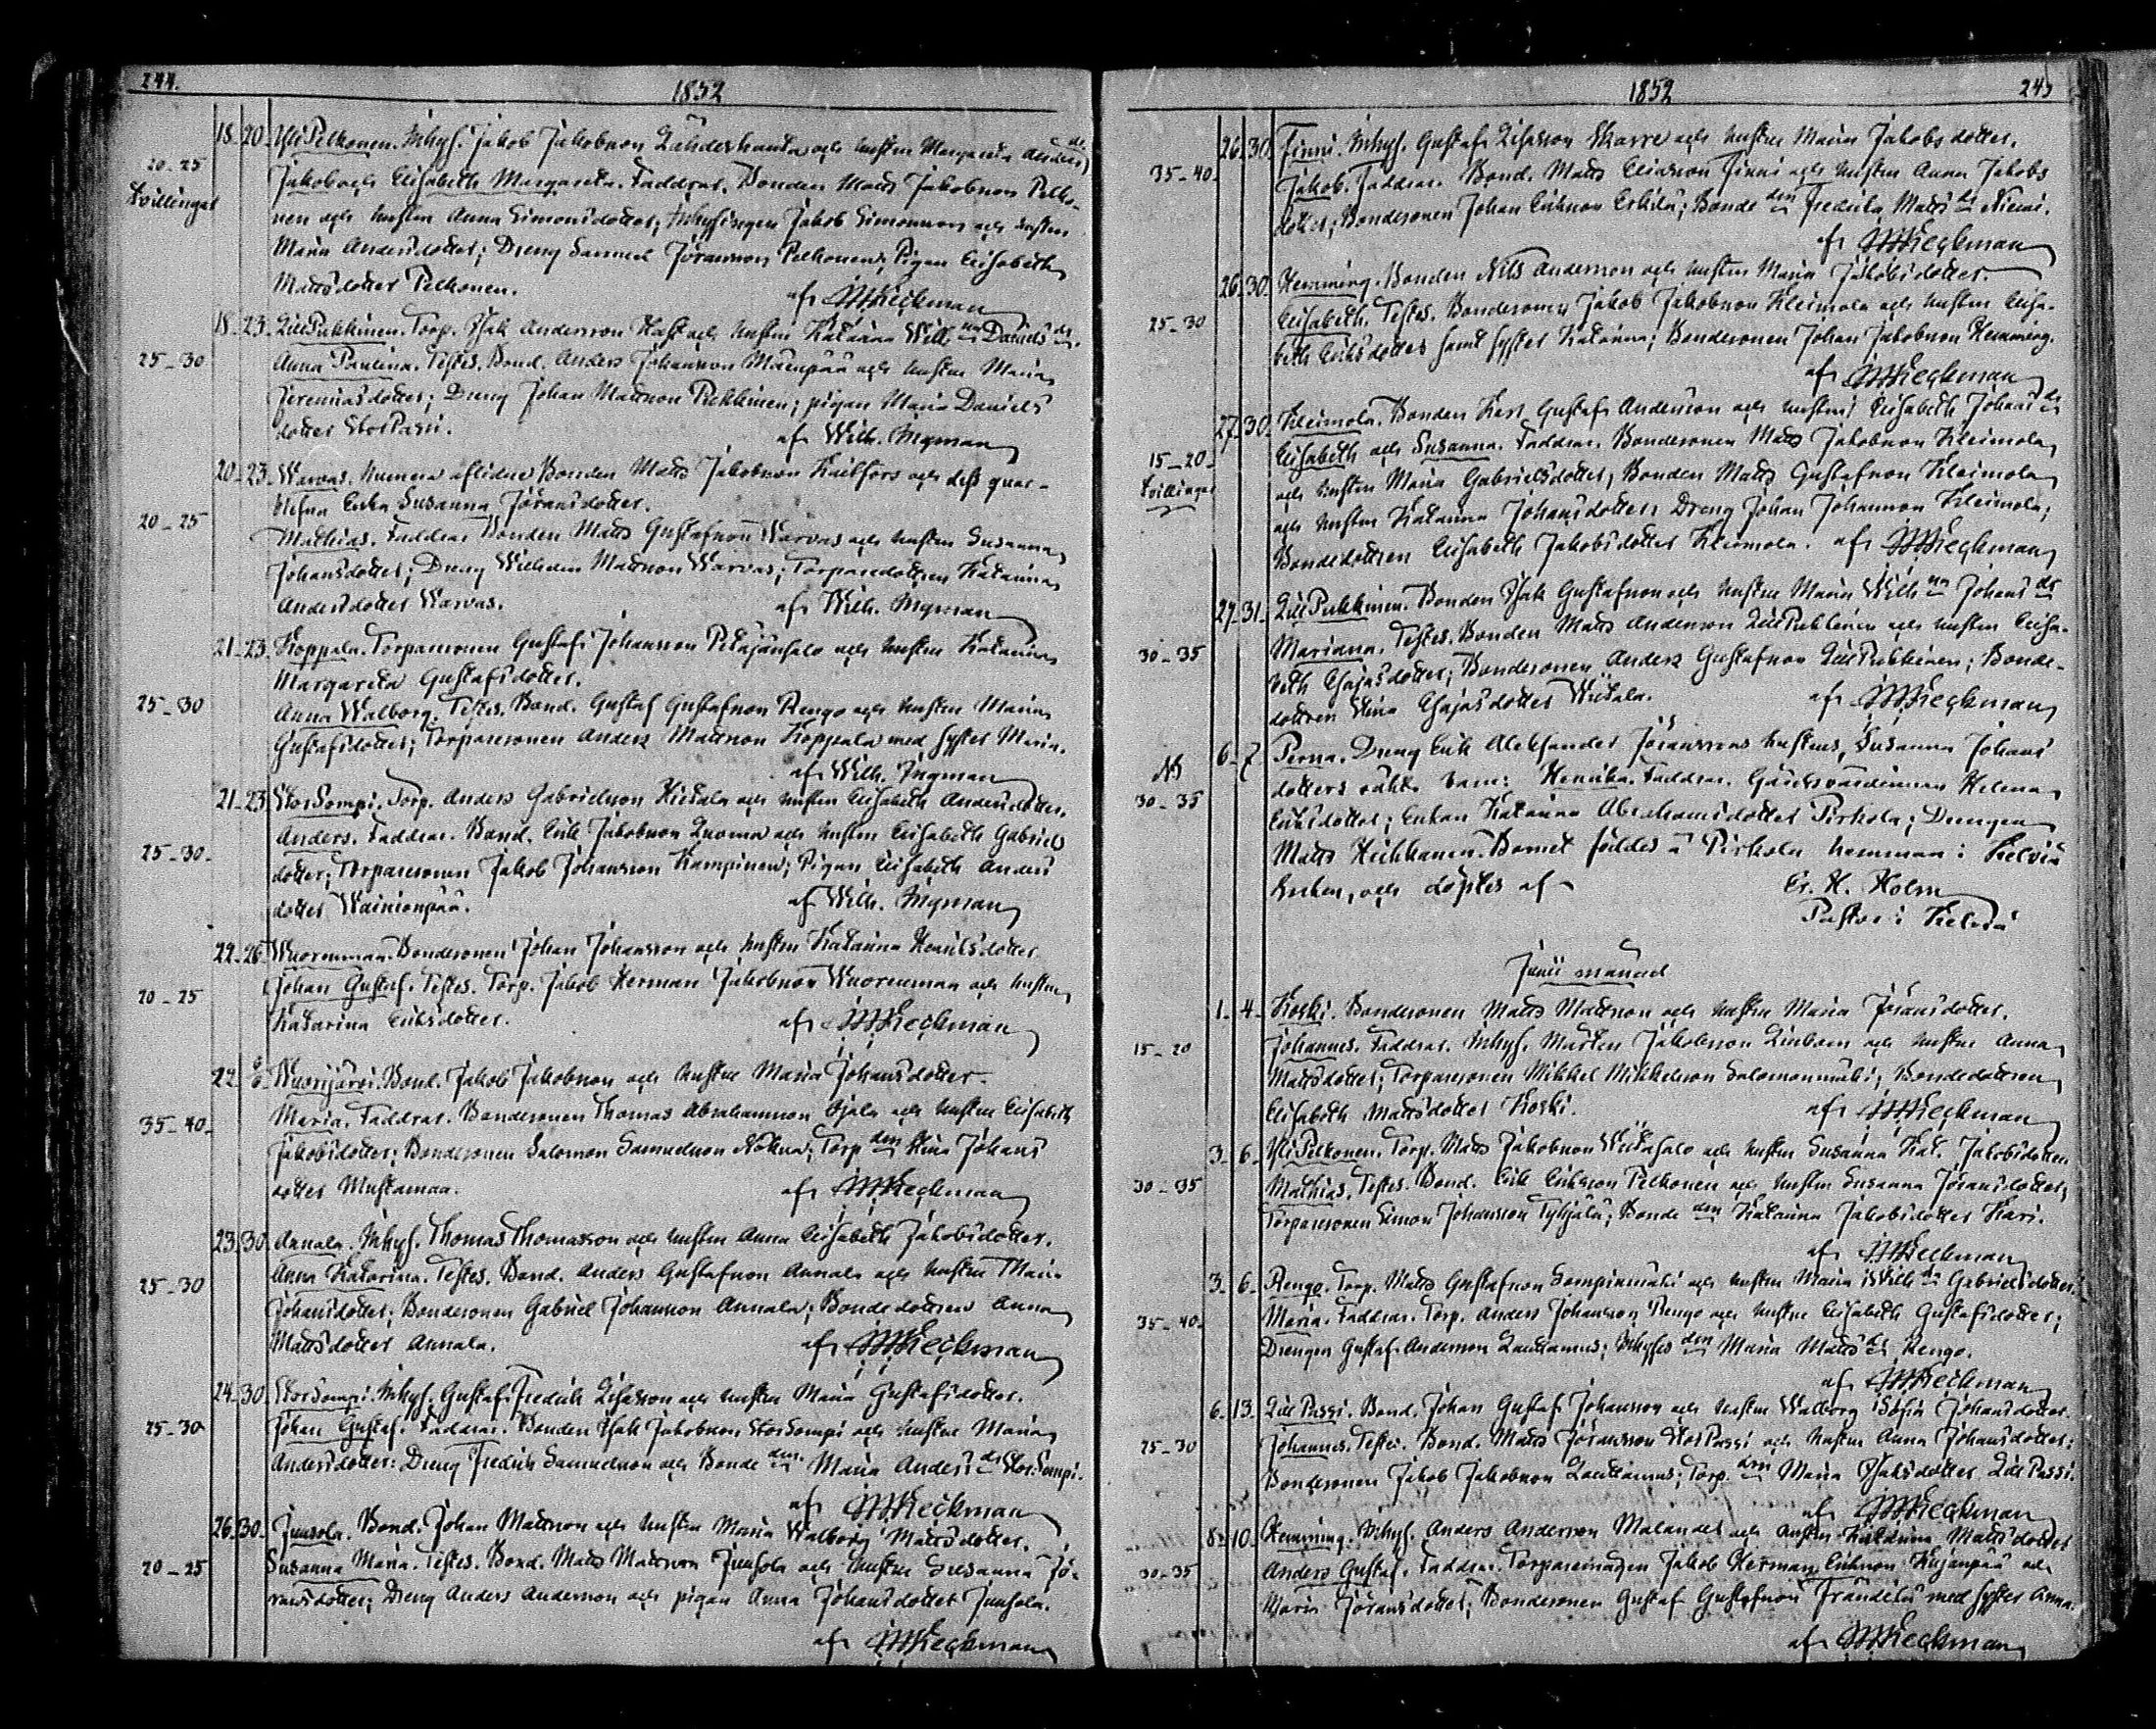 244.
1852
18. 20. YliPelkonen. Inhys. Jakob Jakobsson och hustru Margareta Anders dr.
20-25
tvillingar
Jakob och Elisabeth Margareta. Faddrar. Bonden Matts Jakobsson Pelko-
nen och hustru Anna Simonsdotter; Inhysingen Jakob Simonsson och hustru
Maria Andersdotter; Dreng Samuel Jöransson Pelkonen; Pigan Elisabeth
Mattsdotter Pelkonen.
af JWKeckman
18. 23. LillPukkinen. Torp. Isak Andersson och hustru Katarina Wilh. na Daniels dr.
25-30
Anna Paulina. Testes. Bond. Anders Johansson Mäenpää och hustru Maria
Jeremiasdotter; Dreng Johan Mattsson Pukkinen; pigan Maria Daniels
dotter StorPassi.
af Wilh. Ingman
20. 23. Warvas. Numera aflidne Bonden Matts Jakobsson och dess quar-
blefna Enka Susanna Jöransdotter.
20-25
Mathias. Faddrar Bonden Matts Gustafsson Warvas och hustru Susanna
Johansdotter; Dreng Wilhelm Mattsson Warvas; Torparedottren Katarina
Andersdotter Warvas.
af Wilh. Ingman
21. 23. Koppala. Torparesonen Gustaf Johansson Petäjäsalo och hustru Katarina
Margareta Gustafsdotter.
25-30
Anna Walborg. Testes. Bond. Gustaf Gustafsson Rengo och hustru Maria
Gustafsdotter; Torparesonen Anders Mattsson Koppala med syster Maria.
af Wilh. Ingman
21. 23 StorSompi. Torp. Anders Gabrielsson Hietala och hustru Elisabeth Andersdotter.
25-30.
Anders. Faddrar. Bond. Erik Jakobsson Luoma och hustru Elisabeth Gabriels
dotter; Torparesonen Jakob Johansson Kampinen; Pigan Elisabeth Anders
dotter Wainionpää.
af Wilh. Ingman
22. 26. Wuorenmaa. Bondesonen Johan Johansson och hustru Katarina Henriksdotter.
20-25
Johan Gustaf. Testes. Torp. Jakob Herman Jakobsson Wuorenmaa och hustru
Katarina Eriksdotter.
af JWKeckman
22. Wuorijärvi. Bond. Jakob Jakobsson och hustru Maria Johansdotter.
35-40.
Maria. Faddrar. Bondesonen Thomas Abrahamsson Ojala och hustru Elisabeth
Jakobsdotter; Bondesonen Salomon Samuelsson; Torp. den Stina Johans
dotter Mustamaa.
af JWKeckman
23. 30. Annala. Inhys. Thomas Thomasson och hustru Anna Elisabeth Jakobsdotter.
25-30
Anna Katarina. Testes. Bond. Anders Gustafsson Annala och hustru Maria
Johansdotter; Bondesonen Gabriel Johansson Annala; Bondedottren Anna
Mattsdotter Annala.
af JWKeckman
24. 30. StorSompi. Inhys. Gustaf Fredrik och hustru Maria Gustafsdotter.
25-30
Johan Gustaf. Faddrar. Bonden Isak Jakobsson StorSompi och hustru Maria
Andersdotter: Dreng Fredrik Samuelsson och Bonde den Maria Anders dr StorSompi.
af JWKeckman
26. 30. Junsola. Bond. Johan Mattsson och hustru Maria Walborg Mattsdotter.
20-25
Susanna Maria. Testes. Bond. Matts Mattsson Junsola och hustru Susanna Jö-
ransdotter; Dreng Anders Andersson och pigan Anna Johansdotter Junsola.
af JWKeckman
1852
245
26. 30. Finni. Inhys. Gustaf och hustru Maria Jakobsdotter.
35-40.
Jakob. Faddrar. Bond. Matts Eliasson Finni och hustru Anna Jakobs
dotter; Bondesonen Johan Eriksson; Bonde den Fredrika Matts dr Niemi.
af JWKeckman
26. 30. Hemming. Bonden Nils Andersson och hustru Maria Jakobsdotter.
25-30
Elisabeth. Testes. Bondesonen Jakob Jakobsson Kleimola och hustru Elisa-
beth Eriksdotter samt syster Katarina; Bondesonen Johan Jakobsson Hemming.
af JWKeckman
27. 30. Kleimola. Bonden Karl Gustaf Andersson och hustru Elisabeth Johans dr
15-20.
tvillingar
Elisabeth och Susanna. Faddrar. Bondesonen Matts Jakobsson Kleimola
och hustru Maria Gabrielsdotter, Bonden Matts Gustafsson Kleimola
och hustru Katarina Johansdotter; Dreng Johan Johansson Kleimola;
Bondedottren Elisabeth Jakobsdotter Kleimola. af JWKeckman
29. 31. LillPukkinen. Bonden Isak Gustafsson och hustru Maria Wilh. na Johans dr
30-35
Mariana. Testes. Bonden Matts Andersson LillPukkinen och hustru Elisa-
beth Esajasdotter; Bondesonen Anders Gustafsson LillPukkinen; Bonde-
dottren Stina Esajasdotter Wiitala.
af JWKeckman
6. 7 Perna. Dreng Erik Aleksander Jöranssons hustrus, Susanna Johans
NB
30-35
dotters barn: Henrika. Faddrar. Gårdsvärdinnan Helena
Eriksdotter; Enkan Katarina Abrahamsdotter Pirkola; Drengen
Matts. Barnet föddes å Pirkola hemman i Kelviå
Socken, och döptes af
Er. H. Holm
Pastor i Kelviå
Junii månad
1. 4. Koski. Bondesonen Matts Mattsson och hustru Maria Jöransdotter.
15-20
Johannes. Faddrar. Inhys. Mårten Jakobsson Linbom och hustru Anna
Mattsdotter; Torparesonen Mikkel Mikkelsson Salomonmäki; Bondedottren
Elisabeth Mattsdotter Koski.
af JWKeckman
3. 6. YliPelkonen. Torp. Matts Jakobsson Wiitasalo och hustru Susanna Kat. Jakobsdotter.
30-35
Mathias. Testes. Bond. Erik Eriksson Pelkonen och hustru Susanna Jöransdotter;
Torparesonen Simon Johansson Tyhjälä; Bonde den Katarina Jakobsdotter Kari.
af JWKeckman
3. 6. Rengo. Torp. Matts Gustafsson Sompinmäki och hustru Maria Wilh. na Gabrielsdotter.
35-40.
Maria. Faddrar. Torp. Anders Johansson Rengo och hustru Elisabeth Gustafsdotter;
Drengen Gustaf Andersson; Inhyses den Maria Matts dr Rengo.
af JWKeckman
6. 13. LillPassi. Bond. Johan Gustaf Johansson och hustru Walborg Sofia Johansdotter.
25-30
Johannes. Testes. Bond. Matts Jöransson StorPassi och hustru Anna Johansdotter;
Bondesonen Jakob Jakobsson; Torp. den Maria Isaksdotter LillPassi.
af JWKeckman
8. 10. Hemming. Inhys. Anders Andersson Malander och hustru Katarina Mattsdotter
30-35
Anders Gustaf. Faddrar. Torparemågen Jakob Herman Eriksson och
Maria Jöransdotter; Bondesonen Gustaf Gustafsson Frändilä med syster Anna.
af JWKeckman